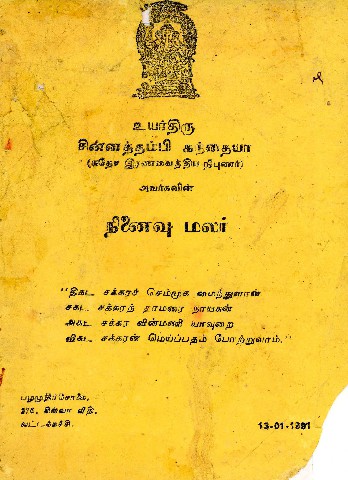 உயர்திரு
சின்னத்தம்பி கந்தையா
(சுதேச இரணவைத்திய நிபுணர்)
அவர்களின்
நினைவு மலர்
"திகட சக்கரச் செம்முக மைந்துளான்
சகட சக்கரந் தாமரை நாயகன்
அகட சக்கர வின்மணி யாவுறை
விகட சக்கரன் மெய்ப்பதம் போற்றுவாம்."
பழமுதிர்சோலை,
வட்டுக்கோட்டை.
13-01-1991